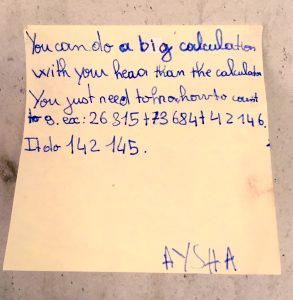 You can do a big calculation
with your head than the calculator
You just need to know how to count
to 9. ex: 26 315+73 684+42 146.
It do 142 145.
AYSHA